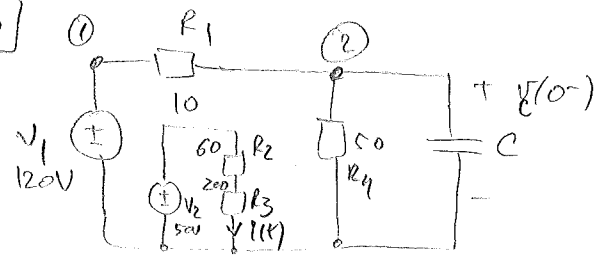 ① R1 ②
10
+ Vc(0-)
V1
120V
60 R2
200 R3
V2
50V
i(t)
R4
C
-